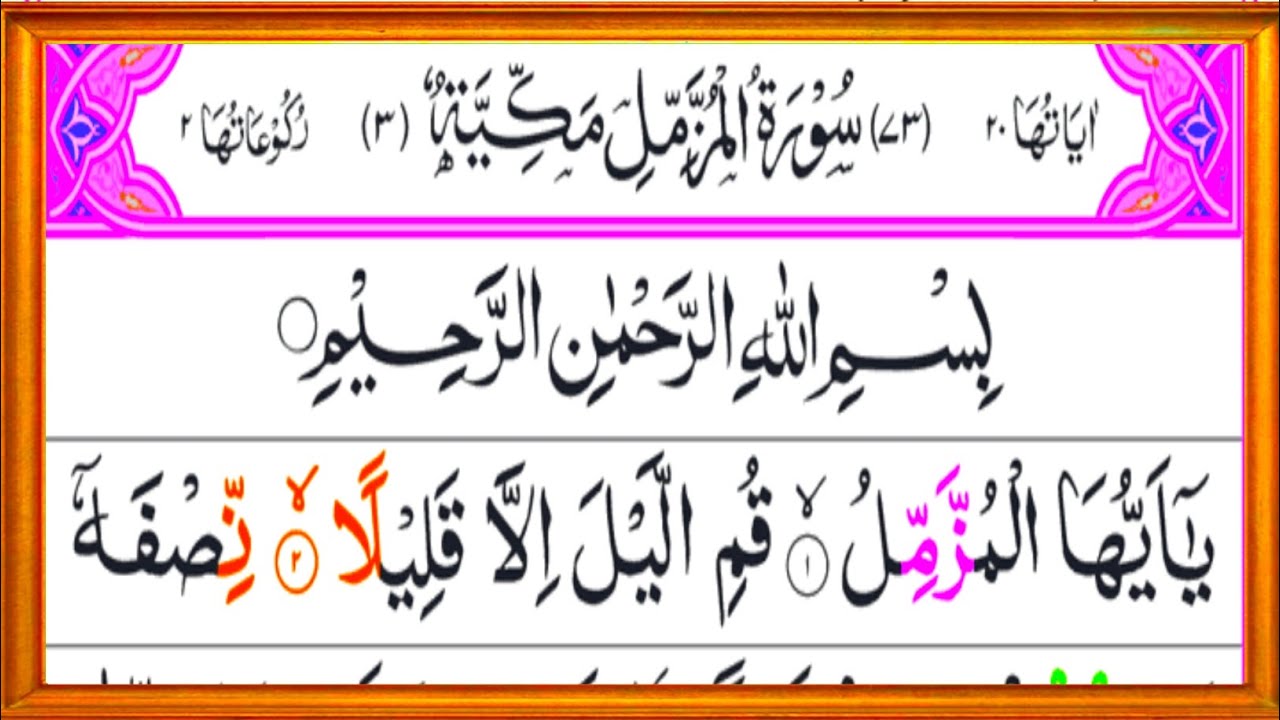 اٰيَاتُهَا ٢٠ (٧٣) سُوْرَةُ الْمُزَّمِّلِ مَكِّيَّةٌ (٣) رُكُوْعَاتُهَا ٢
بِسْمِ اللّٰهِ الرَّحْمٰنِ الرَّحِيْمِ
يٰۤاَيُّهَا الْمُزَّمِّلُ ۙ﴿١﴾ قُمِ الَّيْلَ اِلَّا قَلِيْلًا ۙ﴿٢﴾ نِّصْفَهٗۤ